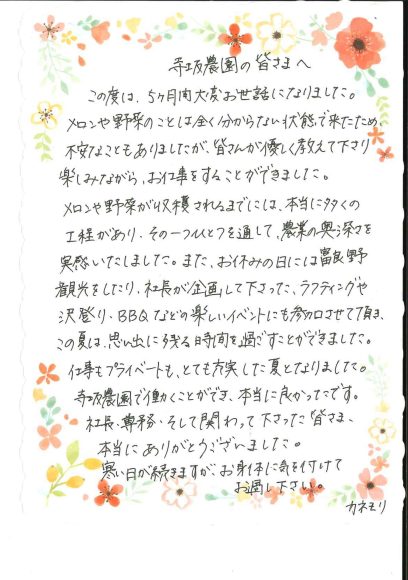 寺坂農園の皆さまへ
この度は、5ヶ月間大変お世話になりました。
メロンや野菜のことは全く分からない状態で来たため、
不安なこともありましたが、皆さんが優しく教えて下さり
楽しみながら、お仕事をすることができました。
メロンや野菜が収穫されるまでには、本当に多くの
工程があり、その一つひとつを通して、農業の奥深さを
実感いたしました。また、お休みの日には富良野
観光をしたり、社長が企画して下さった、ラフティングや
沢登り、BBQなどの楽しいイベントにも参加させて頂き、
この夏は、思い出に残る時間を過ごすことができました。
仕事もプライベートも、とても充実した夏となりました。
寺坂農園で働くことができ、本当に良かったです。
社長、専務、そして関わって下さった皆さま、
本当にありがとうございました。
寒い日が続きますが、お身体に気を付けて
お過し下さい。
カネモリ